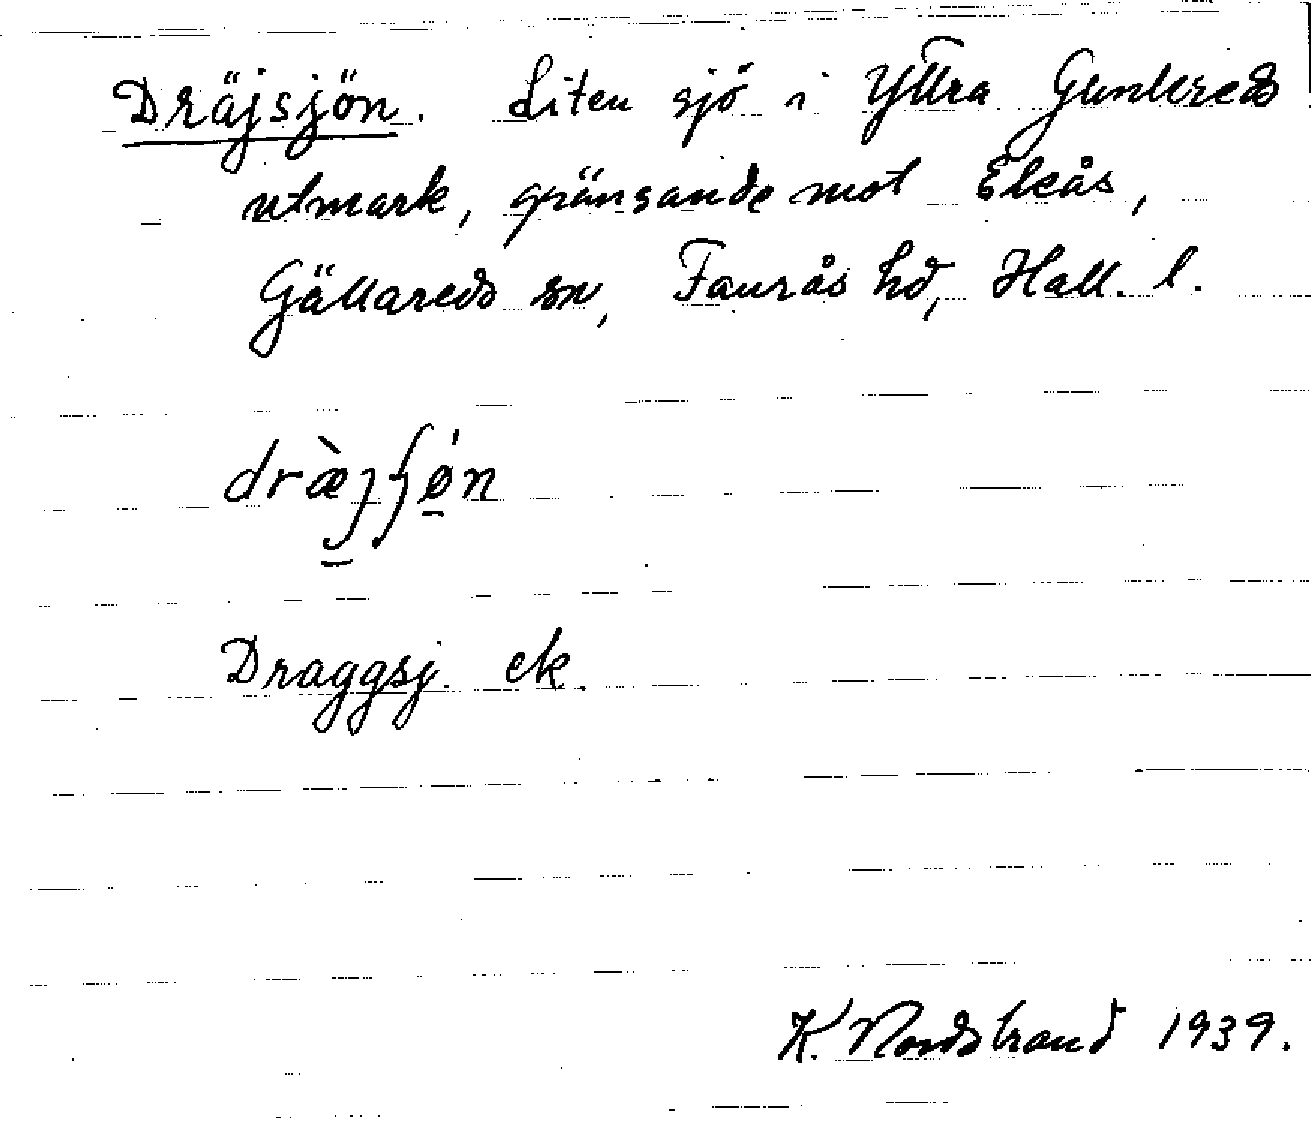 Dräjsjön. Liten sjö i Yttra Gunkreds
utmark, gränsande mot Ekås,
Gällareds sn, Faurås hd, Hall. l.
dræ̀jʃø̠'n
Draggsj. ek.
K. Nordstrand 1939.